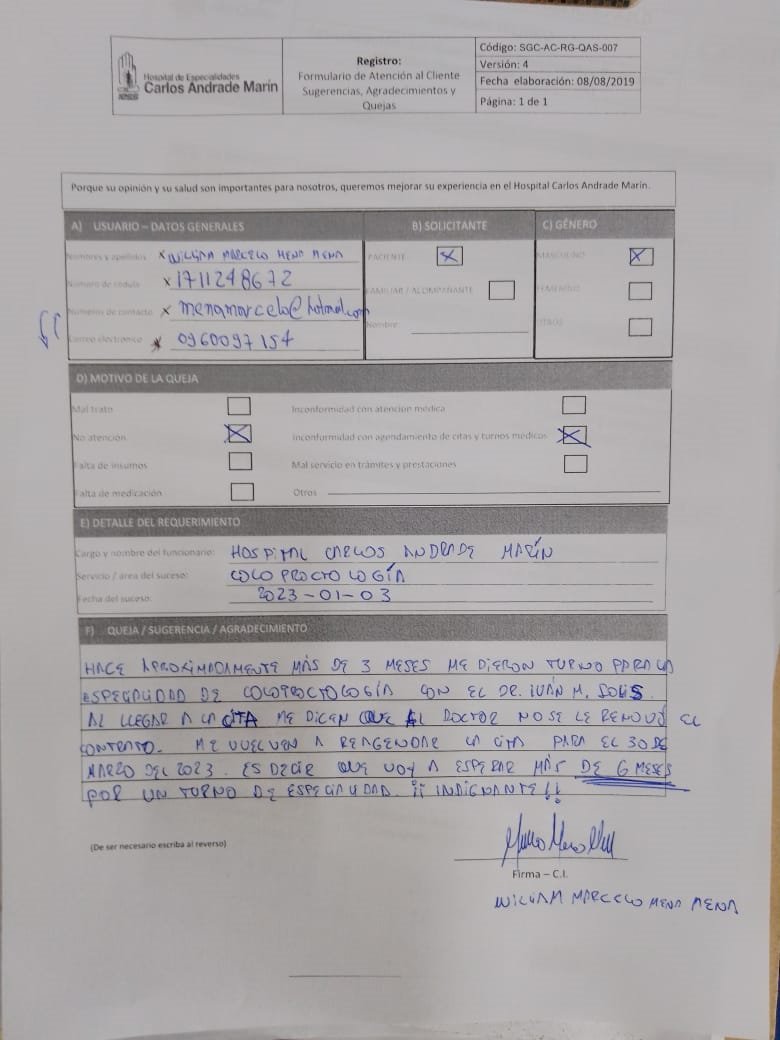 Hospital de Especialidades
Carlos Andrade Marín
Registro:
Formulario de Atención al Cliente
Sugerencias, Agradecimientos y
Quejas
Código: SGC-AC-RG-QAS-007
Versión: 4
Fecha elaboración: 08/08/2019
Página: 1 de 1
Porque su opinión y su salud son importantes para nosotros, queremos mejorar su experiencia en el Hospital Carlos Andrade Marín.
A) USUARIO – DATOS GENERALES
B) SOLICITANTE
C) GÉNERO
Nombres y apellidos x WILLIAM MARCELO MENA MENA
Número de cédula x 1711248672
Números de contacto x menamarcelo@hotmail.com
Correo electrónico x 0960097154
PACIENTE X
FAMILIAR / ACOMPAÑANTE
Nombre:
MASCULINO X
FEMENINO
OTROS
D) MOTIVO DE LA QUEJA
Mal trato
Inconformidad con atención médica
No atención X
Inconformidad con agendamiento de citas y turnos médicos X
Falta de insumos
Mal servicio en trámites y prestaciones
Falta de medicación
Otros
E) DETALLE DEL REQUERIMIENTO
Cargo y nombre del funcionario: HOSPITAL CARLOS ANDRADE MARÍN
Servicio / área del suceso: COLOPROCTOLOGÍA
Fecha del suceso: 2023-01-03
F) QUEJA / SUGERENCIA / AGRADECIMIENTO
HACE APROXIMADAMENTE MÁS DE 3 MESES ME DIERON TURNO PARA LA
ESPECIALIDAD DE COLOPROCTOLOGÍA CON EL DR. IVÁN M. SOLIS.
AL LLEGAR A LA CITA ME DICEN QUE AL DOCTOR NO SE LE RENOVÓ EL
CONTRATO. ME VUELVEN A REAGENDAR LA CITA PARA EL 30 DE
MARZO DEL 2023. ES DECIR QUE VOY A ESPERAR MÁS DE 6 MESES
POR UN TURNO DE ESPECIALIDAD. ¡¡ INDIGNANTE !!
(De ser necesario escriba al reverso)
Firma – C.I.
WILLIAM MARCELO MENA MENA